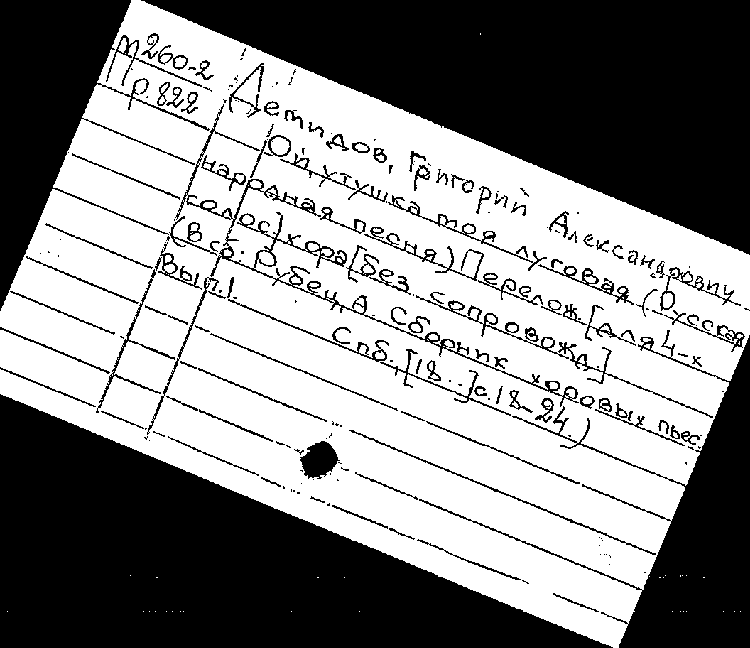 М260-2
Пр.822
Демидов, Григорий Александрович
Ой, утушка моя луговая (Русская
народная песня.) Перелож. [для 4-х
голос] хора [без сопровожд]
(В сб.: Рубец, А. Сборник хоровых пьес.
Вып.1
Спб., [18..] с.18-24)